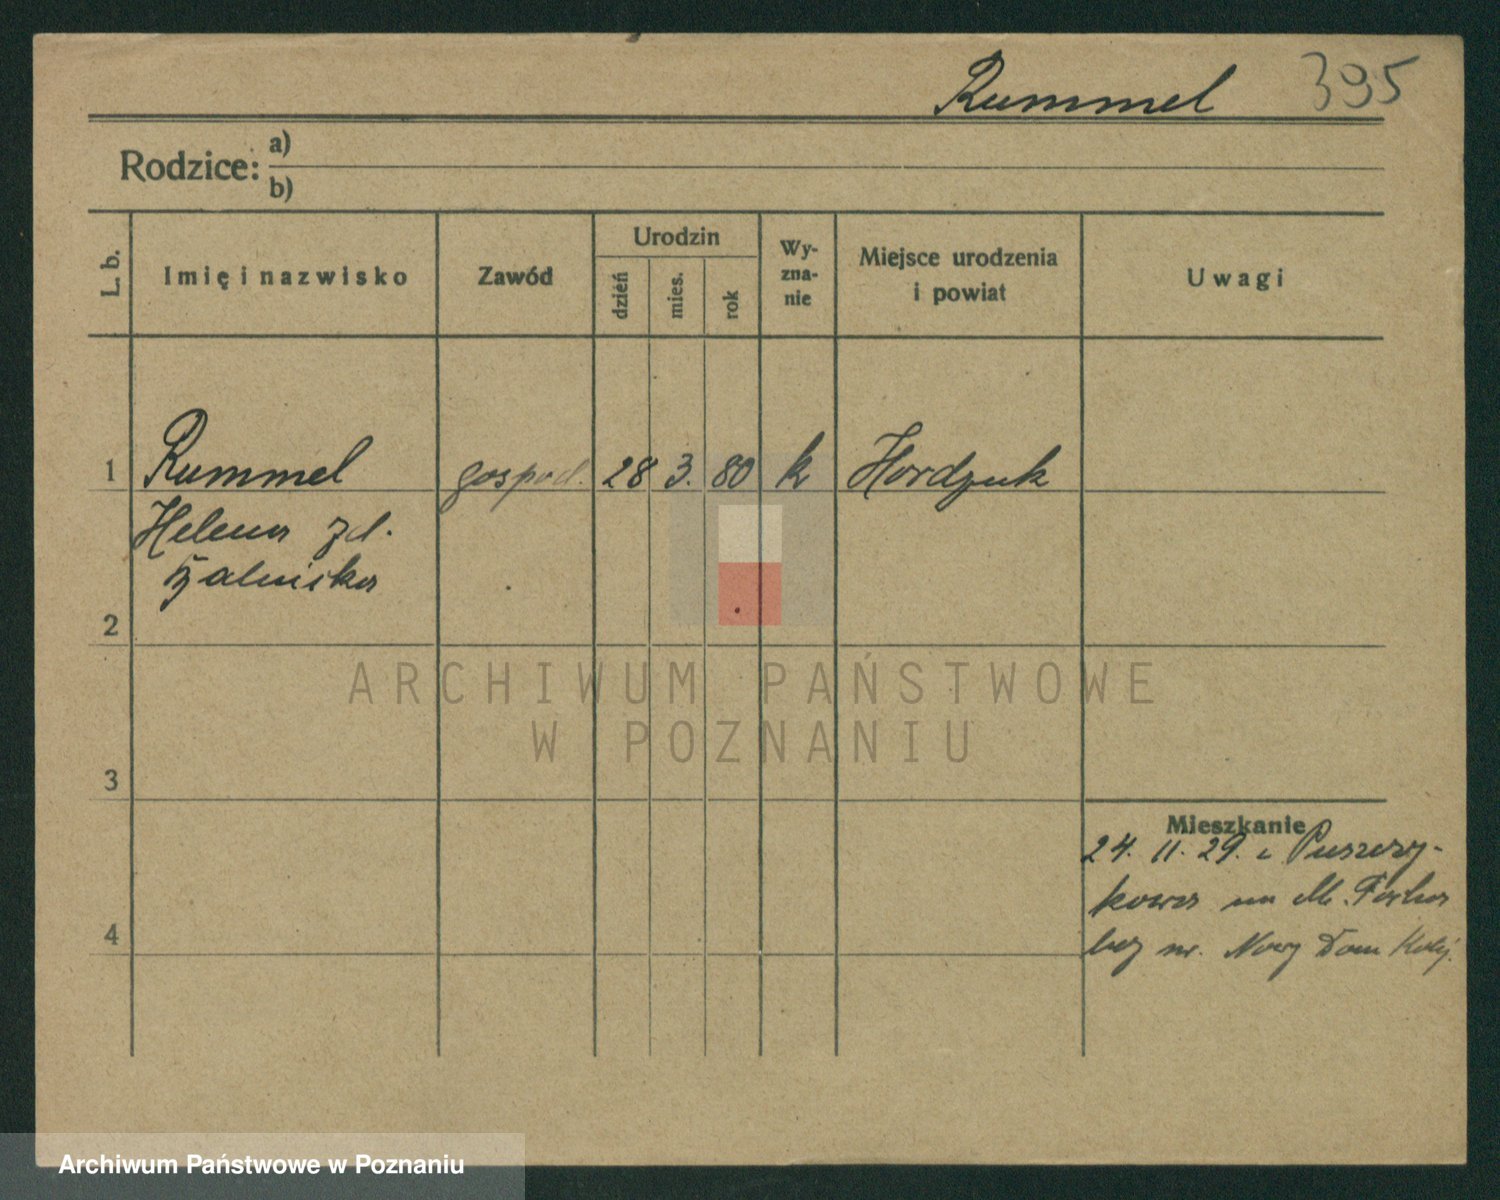 Rummel 395
Rodzice: a)
b)
L. b. Imię i nazwisko Zawód Urodzin dzień mies. rok Wy-zna-nie Miejsce urodzenia i powiat Uwagi
1 Rummel gospod. 28 3. 80 k Hordzuk
Helena zd.
2
3
Mieszkanie
24. 11. 29. z Puszczy-
kowa na M.
4
nr. Nowy Dom Kolej.
ARCHIWUM PAŃSTWOWE
W POZNANIU
Archiwum Państwowe w Poznaniu